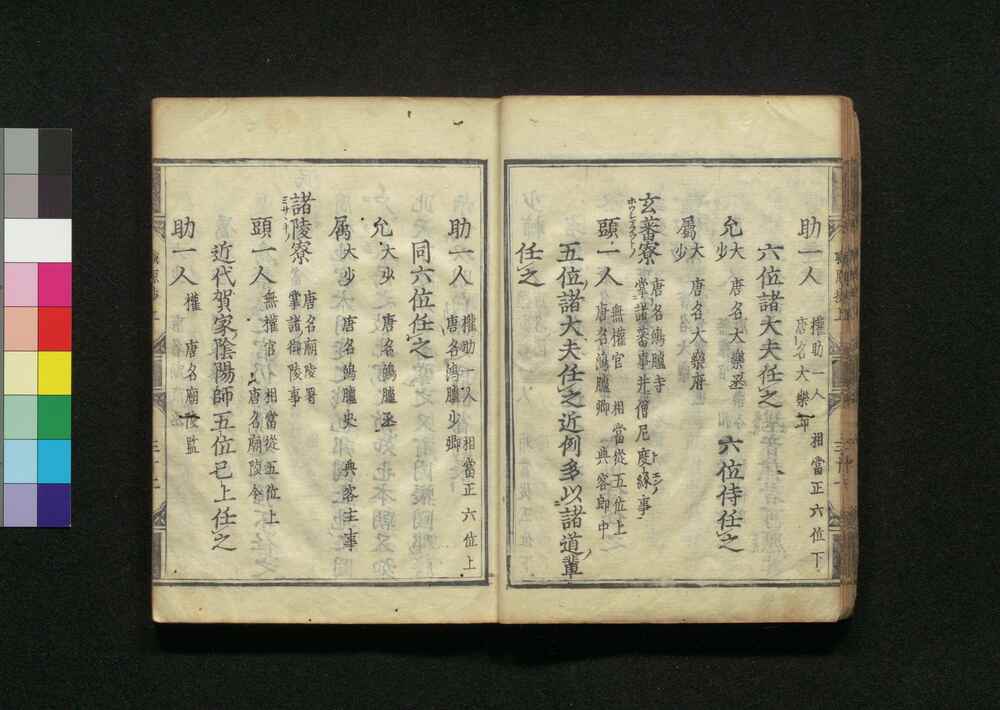 助一人 權助一人 相當正六位下
唐名大樂
六位諸大夫任之
允 大 唐名大樂丞 六位侍任之
少
属 大 唐名大樂府
少
玄蕃寮 唐名鴻臚寺
掌諸蕃事并僧尼度縁事
頭一人 無權官 相當從五位上
唐名鴻臚卿 典客郎中
五位諸大夫任之近例多以諸道輩
任之
助一人 權助一人 相當正六位上
唐名鴻臚少卿
同六位任之
允 大少 唐名鴻臚丞
属 大少 唐名鴻臚史 典客主事
諸陵寮 唐名廟陵署
掌諸御陵事
頭一人 無權官 相當從五位上
唐名廟陵令
近代賀家陰陽師五位已上任之
助一人 權 唐名廟陵監